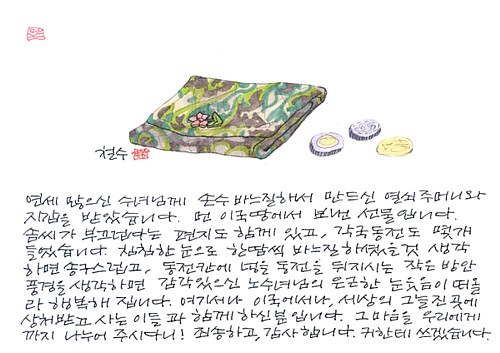 철수
연세 많으신 수녀님께 손수 바느질해서 만드신 열쇠주머니와
지갑을 받았습니다. 먼 이국땅에서 보내신 선물입니다.
솜씨가 부끄럽다는 편지도 함께 있고, 각국동전도 몇개
들었습니다. 침침한 눈으로 한땀씩 바느질하셨을것 생각
하면 송구스럽고, 동전칸에 떡을 동전을 뒤지시는 작은 방안
풍경을 생각하면 감각있으신 노수녀님의 은근한 눈웃음이 떠올
라 행복해 집니다. 여기서나 이국에서나, 세상의 그늘진 곳에
상처받고 사는 이들 과 함께 하신 분 입니다. 그 마음을 우리에게
까지 나누어 주시다니! 죄송하고, 감사합니다. 귀한데 쓰겠습니다.